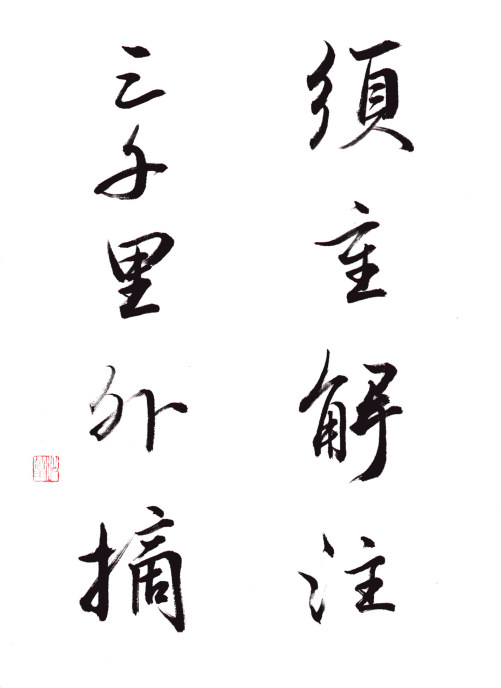 須重解注
三千里外摘